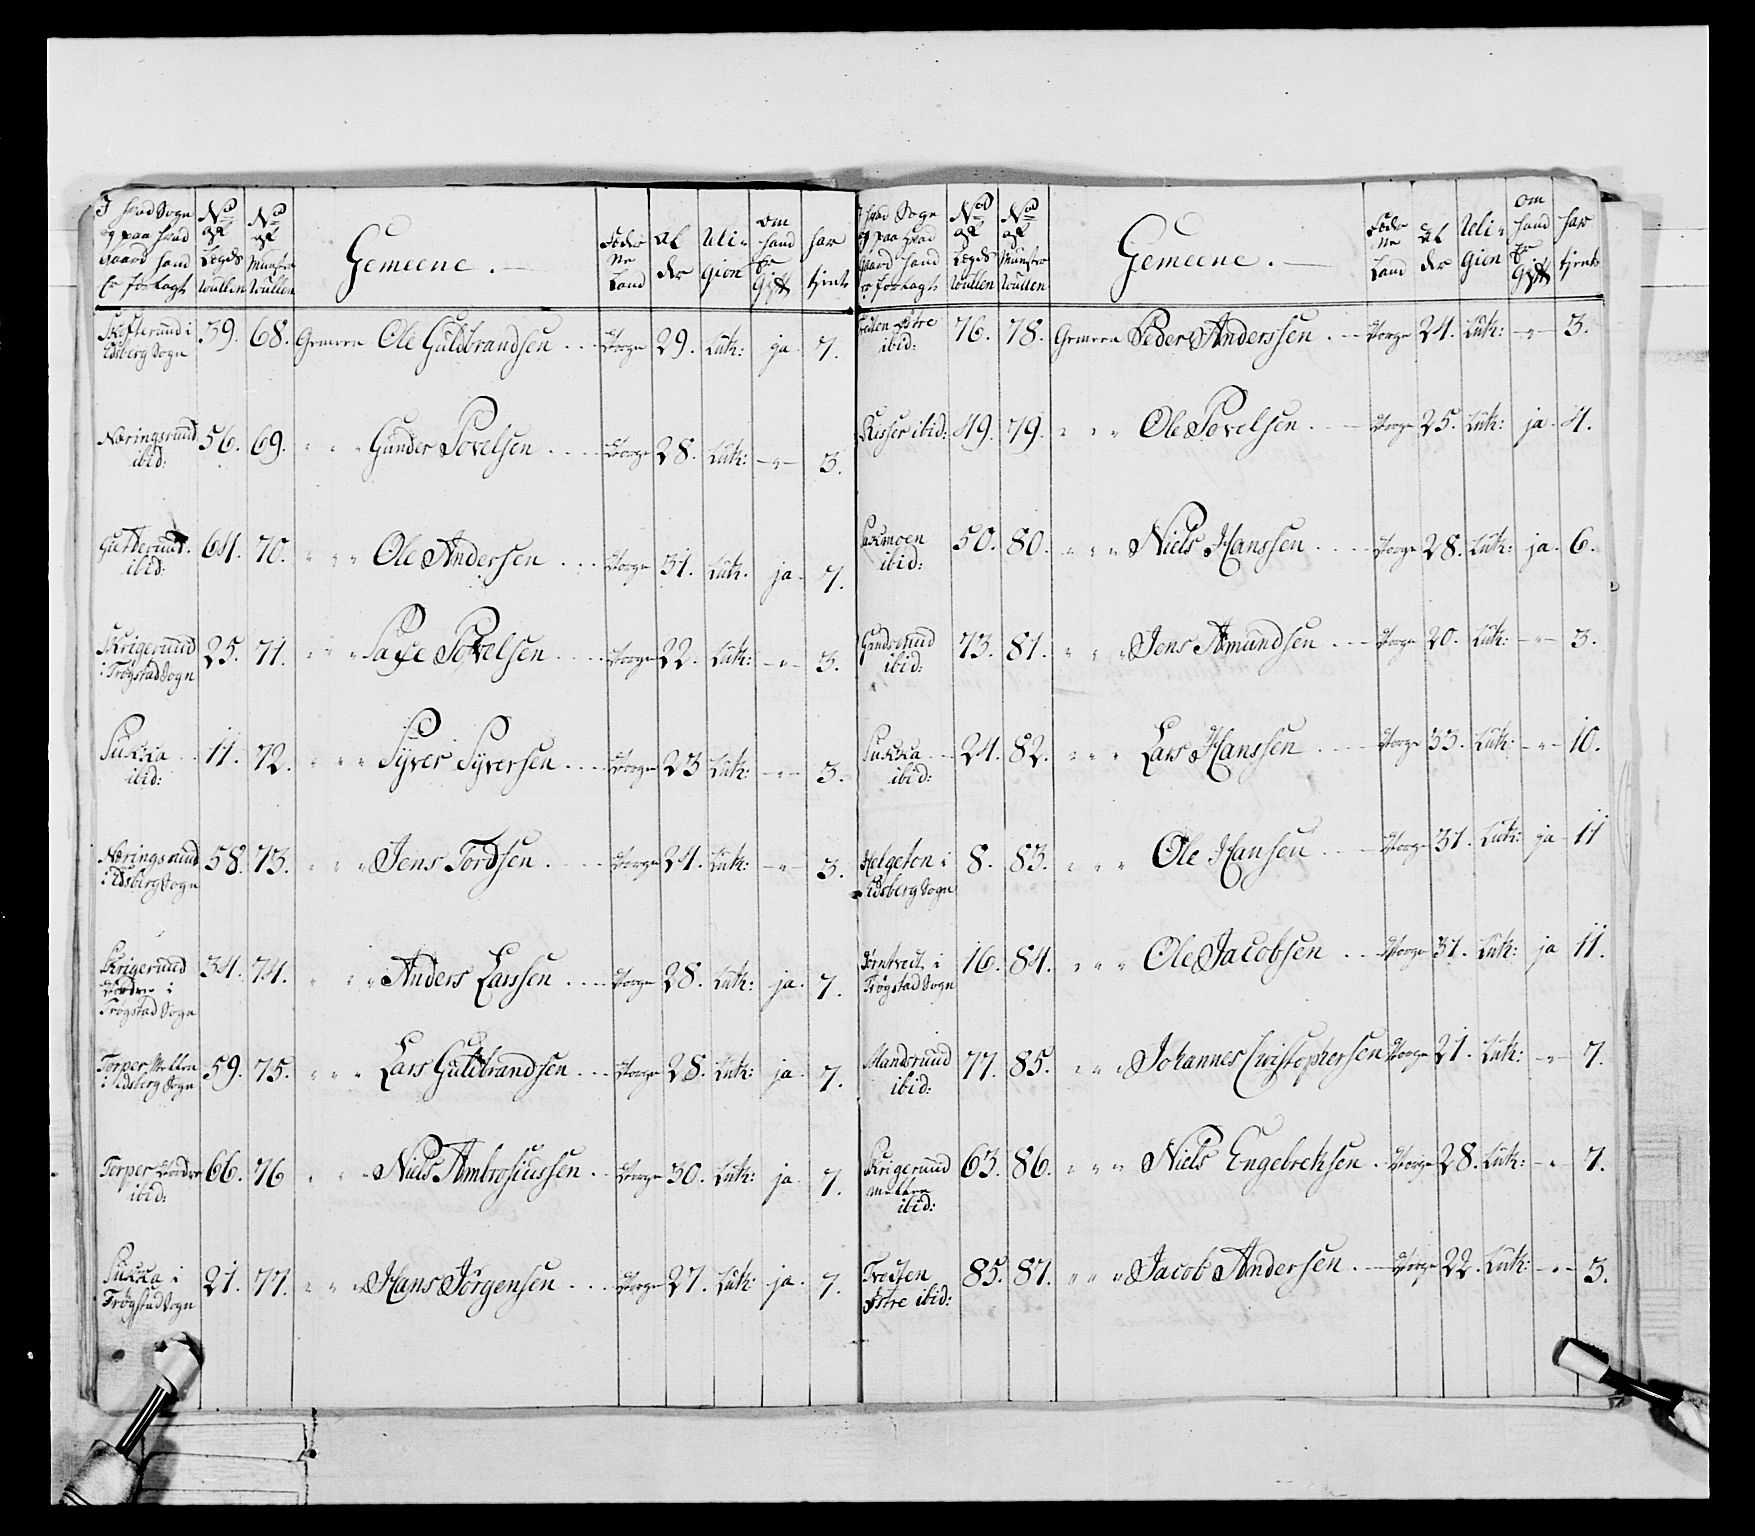 I hvad Sogn og paa hvad Gaard hand er forlagt | No af Lægds Rullen | No af Munster Rullen | Gemeene. | Føde Ne Land | Al der | Reli- gion | om hand Er Gift | har tjent
Skofterund i Edsberg Sogn | 39. | 68. | Gemeen Ole Guldbrandsen | Norge | 29. | Luth: | ja | 7.
Næringsruud ibid: | 56. | 69. | " " " Gunder Povelsen | Norge | 28. | Luth: | -"- | 3.
Gutterud. ibid: | 64. | 70. | " " " Ole Andersen | Norge | 31. | Luth. | ja | 7.
Krigeruud i Trøgstad Sogn | 25. | 71. | " " " Povelsen | Norge | 22. | Luth: | -"- | 3.
Sukka ibid: | 11. | 72. | " " " Syver Syversen | Norge | 23 | Luth: | -"- | 3.
Næringsruud i Edsberg Sogn | 58. | 73. | " " " Jens Tordsen | Norge | 24. | Luth: | -"- | 3.
Krigeruud Nordre i Trøgstad Sogn | 34. | 74. | " " " Anders Larssen | Norge | 28. | Luth: | ja. | 7.
Torper Mellem i Edsberg Sogn | 59. | 75. | " " " Lars Guldbrandsen | Norge | 28. | Luth: | ja. | 7.
Torper Nordre ibid: | 66. | 76 | " " " Niels Ambrosiussen | Norge | 30. | Luth: | ja. | 7.
Sukka i Trøgstad Sogn | 21. | 77. | " " " Hans Jörgensen | Norge | 27. | Luth: | ja. | 7.
I hvad Sogn og paa hvad Gaard hand er forlagt | No af Lægds Rullen | No af Munster Rullen | Gemeene. | Føde Ne Land | Al der | Reli- gion | om hand Er Gift | har tjent
østre ibid: | 76. | 78. | Gemeen Peder Anderssen | Norge | 24. | Luth: | -"- | 3.
Risser ibid: | 49. | 79. | " " " Ole Povelsen | Norge | 25. | Luth: | ja. | 4.
ibid: | 50. | 80. | " " " Niels Hanssen | Norge | 28. | Luth: | ja. | 6.
ibid: | 73. | 81. | " " " Jens Amundsen | Norge | 20. | Luth: | -"- | 3.
Sukka ibid: | 24. | 82. | " " " Lars Hanssen | Norge | 33. | Luth: | -"- | 10.
Helgeton i Edsberg Sogn | 8. | 83. | " " " Ole Hansen | Norge | 31. | Luth: | ja | 11
i Trøgstad Sogn | 16. | 84. | " " " Ole Jacobsen | Norge | 31. | Luth: | ja | 11.
Mandsruud ibid: | 77. | 85. | " " " Johannes Christophersen | Norge | 21. | Luth: | -"- | 7.
Krigeruud Mellem ibid: | 63. | 86. | " " " Niels Engebreksen | Norge | 28. | Luth: | -"- | 7.
østre ibid: | 85. | 87. | " " " Jacob Andersen | Norge | 22. | Luth: | -"- | 3.